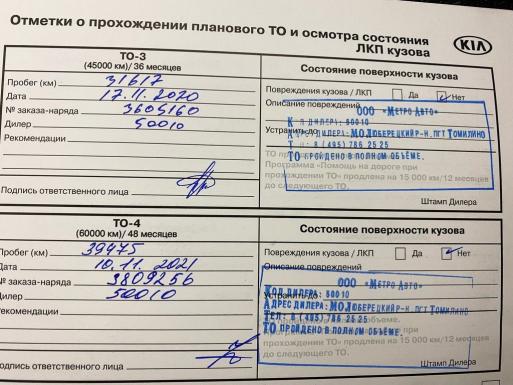 Отметки о прохождении планового ТО и осмотра состояния
ЛКП кузова
KIA
ТО-3
(45000 км)/ 36 месяцев
Пробег (км) 31617
Дата 17.11.2020
№ заказа-наряда 3605160
Дилер 50010
Рекомендации
Подпись ответственного лица
Состояние поверхности кузова
Повреждения кузова / ЛКП Да Нет
Описание повреждений
ООО "Метро Авто"
Устранить до
Код дилера: 50010
Адрес дилера: МО Люберецкий р-н. пгт Томилино
Тел: 8 (495) 786 25 25
ТО пройдено в полном объёме.
Программа «Помощь на дороге при
прохождении ТО» продлена на 15 000 км/12 месяцев
до следующего ТО.
Штамп Дилера
ТО-4
(60000 км)/ 48 месяцев
Пробег (км) 39475
Дата 10.11.2021
№ заказа-наряда 3809256
Дилер 50010
Рекомендации
Подпись ответственного лица
Состояние поверхности кузова
Повреждения кузова / ЛКП Да Нет
Описание повреждений
ООО "Метро Авто"
Код дилера: 50010
Устранить до
Адрес дилера: МО Люберецкий р-н. пгт Томилино
Тел: 8 (495) 786 25 25
ТО пройдено в полном объёме.
прохождении ТО» продлена на 15 000 км/12 месяцев
до следующего ТО.
Штамп Дилера